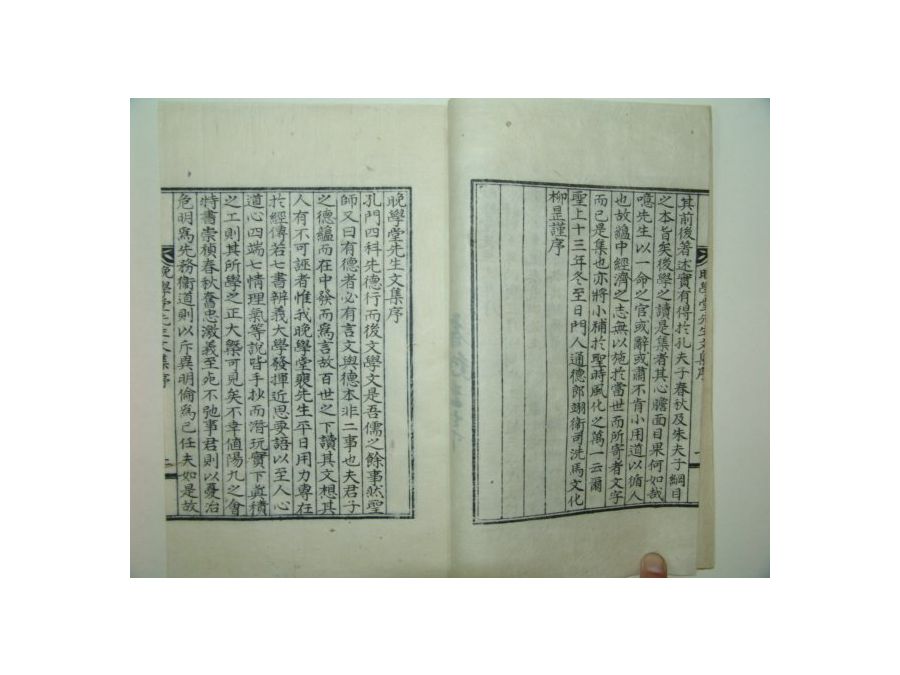 其前後著述實有得於孔夫子春秋及朱夫子綱目
之本旨矣後學之讀是集者其心膽面目果何如哉
噫先生以一命之官或辭或肅不肯小用道以循人
也故蘊中經濟之志無以施於當世而所寄者文字
而已是集也亦將小補於聖時風化之萬一云爾
聖上十三年冬至日門人通德郎翊衛司洗馬文化
柳㫤謹序
晚學堂先生文集序
孔門四科先德行而後文學文是吾儒之餘事然聖
師又曰有德者必有言文與德本非二事也夫君子
之德蘊而在中發而爲言故百世之下讀其文想其
人有不可誣者惟我晚學堂裵先生平日用力專在
於經傳若七書辨義大學發揮近思要語以至人心
道心四端七情理氣等說皆手抄而潛玩實下眞積
之工則其所學之正大槩可見矣不幸値陽九之會
特書崇禎春秋奮忠激義至死不弛事君則以憂治
危明爲先務衛道則以斥異明倫爲己任夫如是故
晚學堂先生文集序